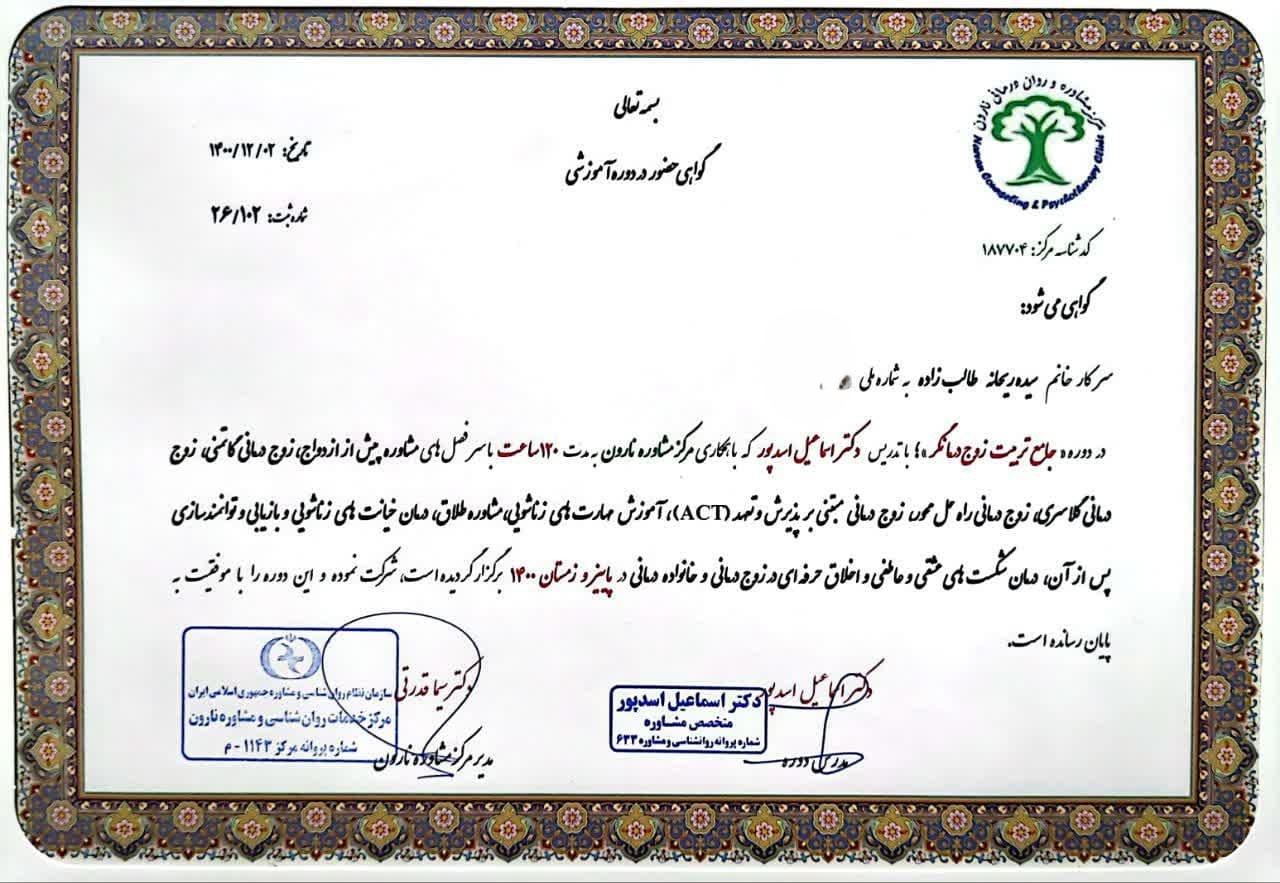 بسمه تعالی
گواهی حضور در دوره آموزشی
تاریخ: ۱۴۰۰/۱۲/۰۲
شماره ثبت: ۲۶/۱۰۲
مرکز مشاوره و روان درمانی نارون
Narvan Counseling & Psychotherapy Clinic
کد شناسه مرکز: ۱۸۷۷۰۴
گواهی می شود:
سرکار خانم سیده ریحانه طالب زاده به شماره ملی
در دوره « جامع تربیت زوج درمانگر » با تدریس دکتر اسماعیل اسدپور که با همکاری مرکز مشاوره نارون به مدت ۱۲۰ ساعت با سرفصل های مشاوره پیش از ازدواج، زوج درمانی گاتمنی، زوج
درمانی گلاسری، زوج درمانی راه حل محور، زوج درمانی مبتنی بر پذیرش و تعهد (ACT)، آموزش مهارت های زناشویی، مشاوره طلاق، درمان خیانت های زناشویی و بازیابی و توانمندسازی
پس از آن، درمان شکست های عشقی و عاطفی و اخلاق حرفه ای در زوج درمانی و خانواده درمانی در پاییز و زمستان ۱۴۰۰ برگزار گردیده است، شرکت نموده و این دوره را با موفقیت به
پایان رسانده است.
دکتر اسماعیل اسدپور
مدرس دوره
دکتر اسماعیل اسدپور
متخصص مشاوره
شماره پروانه روانشناسی و مشاوره ۶۳۳
دکتر سیما قدرتی
مدیر مرکز مشاوره نارون
سازمان نظام روان شناسی و مشاوره جمهوری اسلامی ایران
مرکز خدمات روان شناسی و مشاوره نارون
شماره پروانه مرکز ۱۱۴۳ - م